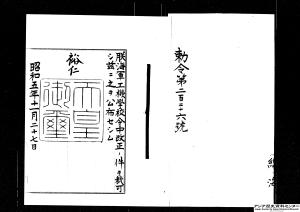 勅令第二百二十六號
朕海軍工機學校令中改正ノ件ヲ裁可
シ茲ニ之ヲ公布セシム
裕仁
天皇
御璽
昭和五年十一月二十七日
アジア歴史資料センター